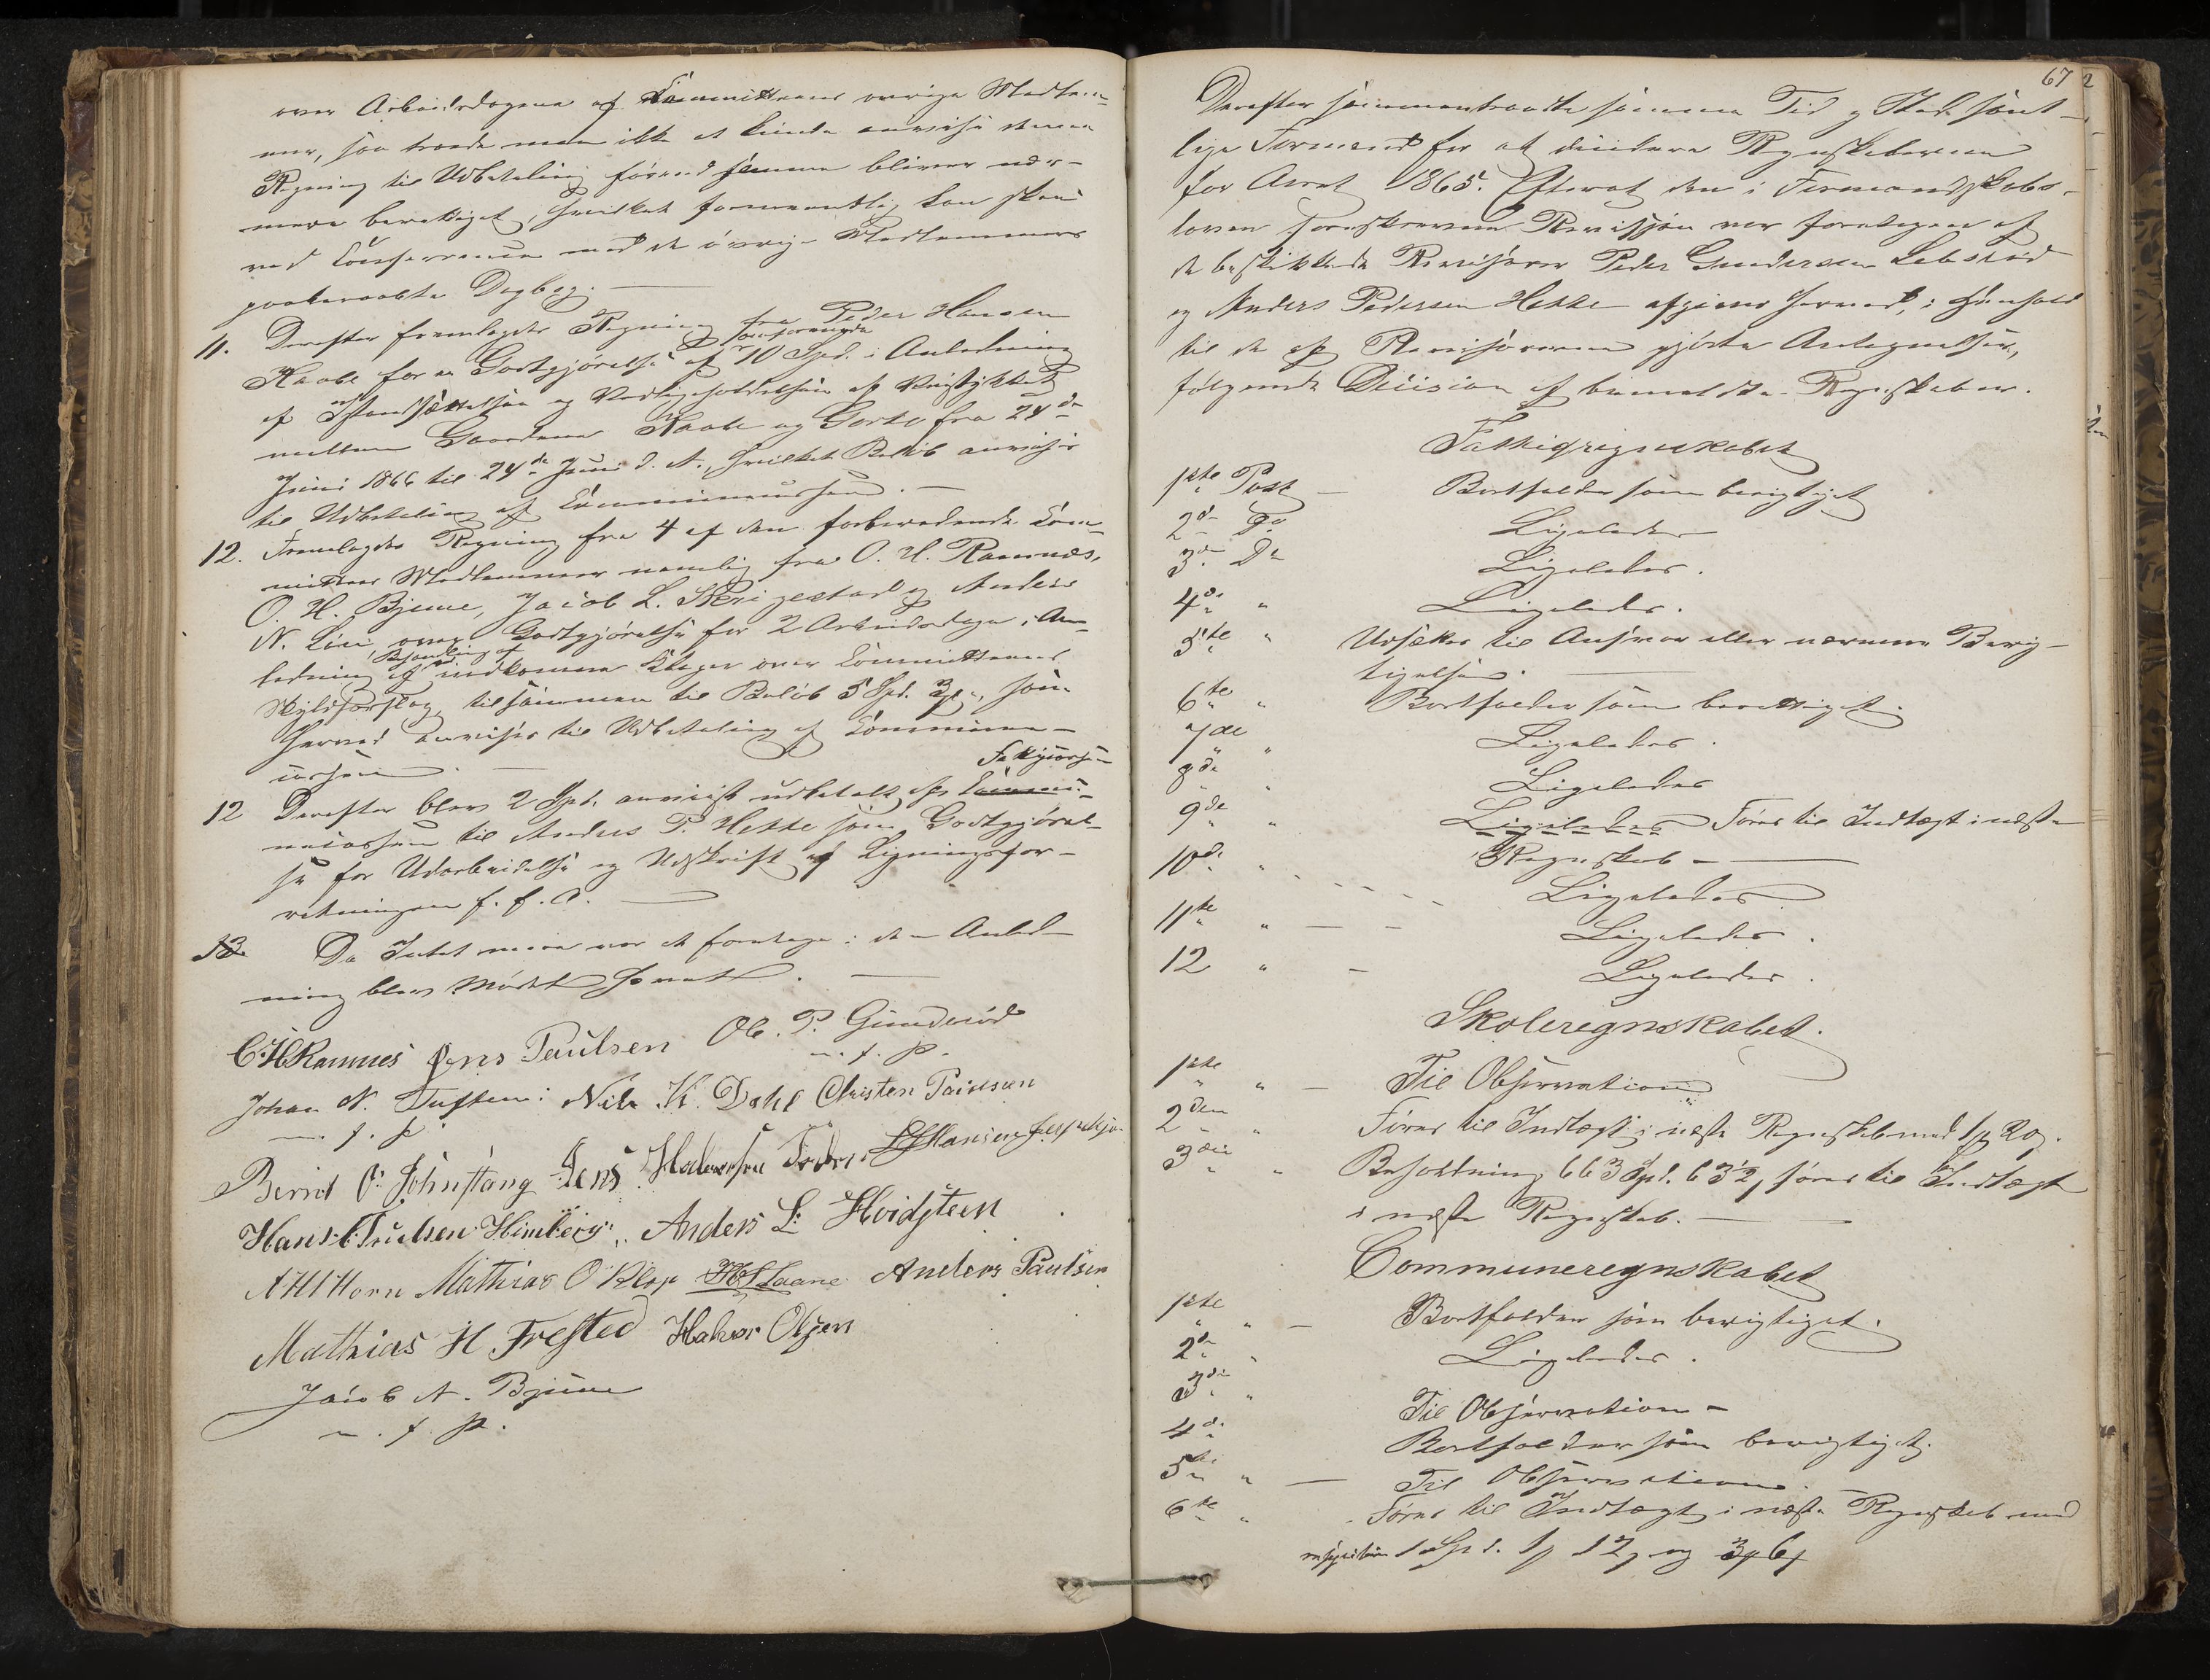 over Arbeidsdagene af Committeens øvrige Medlem-
mer, saa troede man ikke at kunde anvise denne
Regning til Udbetaling førend samme bliver nær-
mere berettiget, hvilket formeentlig kan skee
ved Conferrence med de øvrige Medlemmers
paaberaabte Dagbog. —
11. Derefter fremlagdes Regning fra Peder Hansen
Kaabe for en Godtgjørelse af 10 Spd. i Anledning
af Istandsættelsen og Vedligeholdelsen af Veistykket
mellem Gaardene Kaabe og fra 24de
Juni 1866 til 24de Juni d. A., hvilket Beløb anvises
til Udbetaling af Communecassen. —
12. Fremlagdes Regning fra 4 af den forberedende Com-
mittees Medlemmer nemlig fra O. H. Ramnæs,
O. H. Bjerune, Jacob L. og Anders
N. Lien, over Godtgjørelse for 2 Arbeidsdage i An-
Behandling af
ledning af indkomne Klager over Committeens
Skyldforslag, tilsammen til Beløb 5 Spd. 3, som
herved anvises til Udbetaling af Commune-
cassen. —
12 Derefter blev 2 Spd. anviist udbetalt af
til Anders P. Hette som Godtgjørel-
se for Udarbeidelse og Udskrift af Ligningsfor-
retningen f. f. A. —
13. Da Intet mere var at foretage i den Anled-
ning blev Mødet hævet. —
C. H. Ramnes Jens Paulsen Ole P. Gunderød
m. f. P.
Johan N. Tufteni Nils K. Dahl Christen Paulsen
m. f. P.
Bernt O. Jens Halvorsen
Hans C. Trulsen Himberg Anders L. Hvidsteen
A H Horn Mathias O Klop Anders Paulsen
Mathias H Frested Halvor Olsen
Jacob N. Bjerune
m. f. P.
67
Derefter sammentraadte samme Tid og Sted samt-
lige Formænd for at decidere Regnskaberne
for Aaret 1865. Efterat den i Formandskabs-
loven foreskrevne Revission var foretagen af
de beskikkede Revisorer Peder Gundersen
og Anders Pedersen Hette afgives hermed, i Henhold
til de af Revisorerne gjorte Antegnelser,
følgende Decision af bemeldte Regnskaber.
Fattigregnskabet
1ste Post — Bortfalder som berigtiget
2de Do Ligeledes
3de Do Ligeledes.
4de " Ligeledes.
5te " Udsættes til Ansvar eller nærmere Berig-
tigelse. —
6te " Bortfalder som berettiget.
7de " Ligeledes.
8de " Ligeledes
9de " Ligeledes Føres til Indtægt i næste
Regnskab —
10de " Ligeledes
11te " — — Ligeledes.
12 " — Ligeledes.
Skoleregnskabet.
1ste " — Til Observation
2den " Føres til Indtægt i næste Regnskab med
3die " Beholdning 663 Spd. føres til Indtægt
i næste Regnskab. —
Communeregnskabet
1ste " — Bortfalder som berigtiget.
2de " Ligeledes.
3die " Til Observation —
4de Bortfalder som berigtiget.
5te " — Til Observation.
6te " Føres til Indtægt i næste Regnskab med
1 Spd.